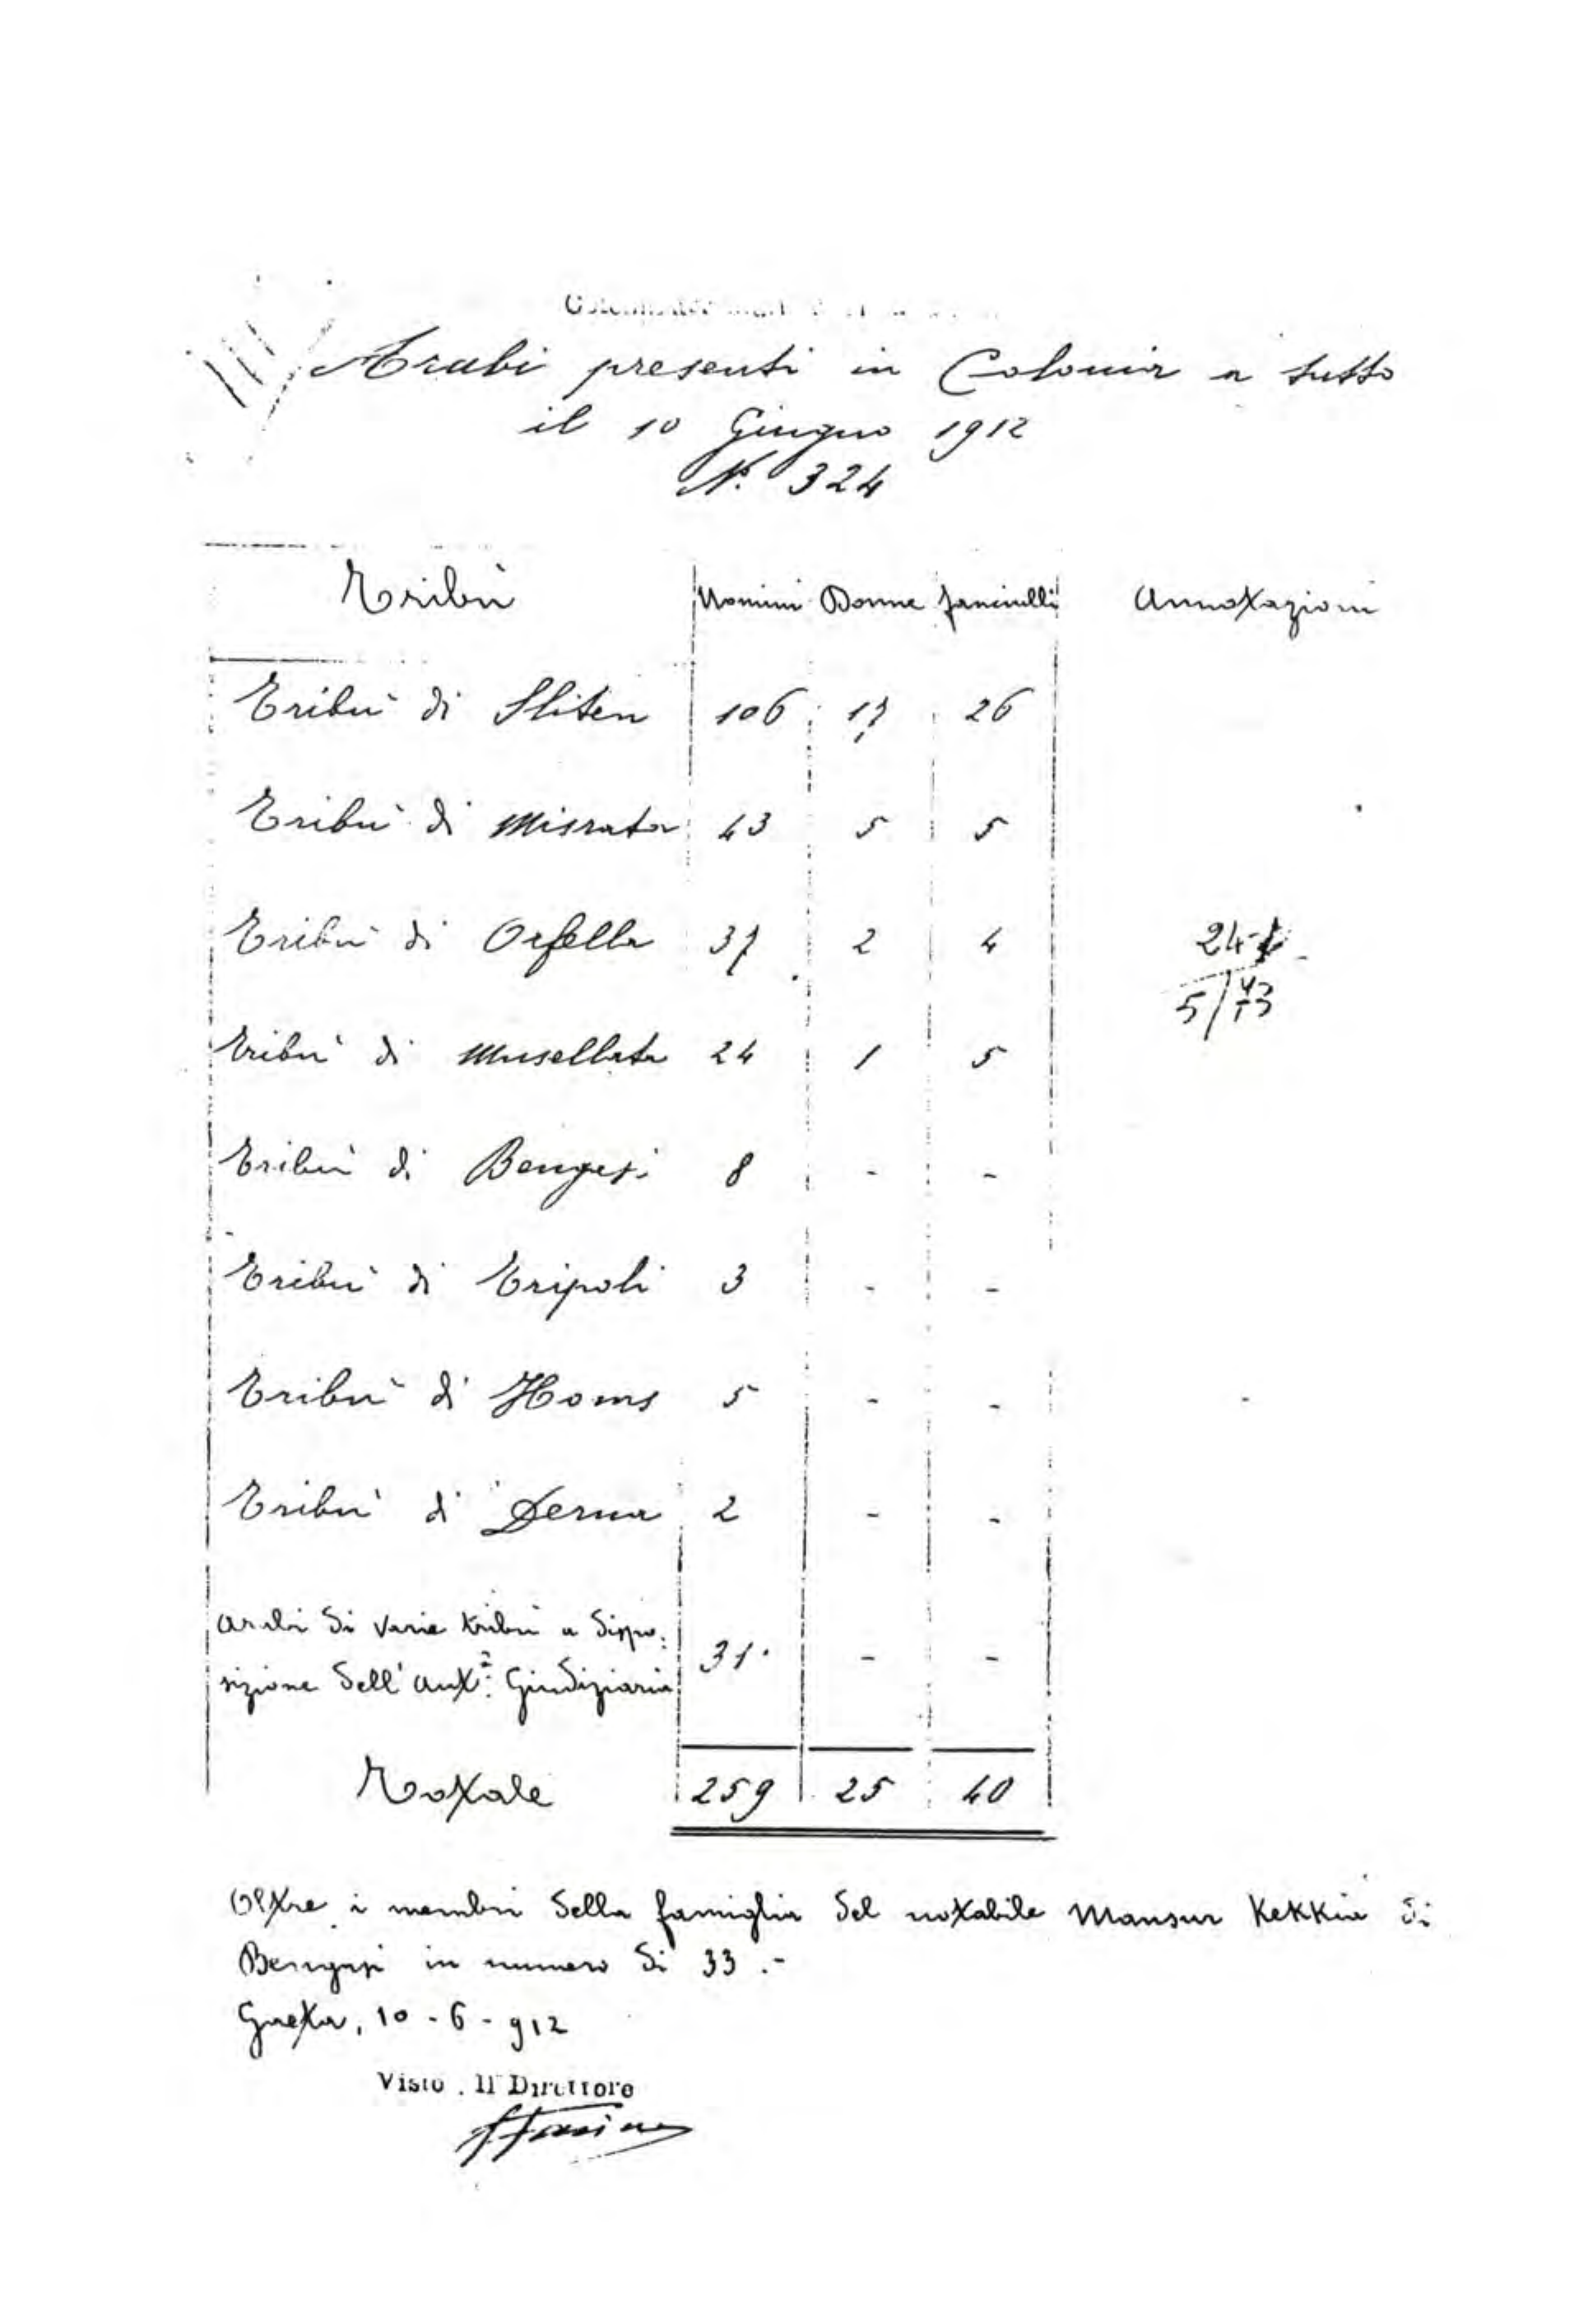 Arabi presenti in Colonia a tutto
il 10 Giugno 1912
N. 324
Tribù Uomini Donne fanciulli Annotazioni
Tribù di Sliten 106 17 26
Tribù di Misrata 43 5 5
Tribù di Orfella 37 2 4
Tribù di Musellata 24 1 5
Tribù di Bengasi 8 - -
Tribù di Tripoli 3 - -
Tribù di Homs 5 - -
Tribù di Derna 2 - -
Arabi di varie tribù a dispo:
sizione dell'Autà Giudiziaria 31 - -
Totale 259 25 40
Oltre i membri della famiglia del notabile Mansur Kekkia di
Bengasi in numero di 33.-
Gaeta, 10-6-912
Visto. Il Direttore